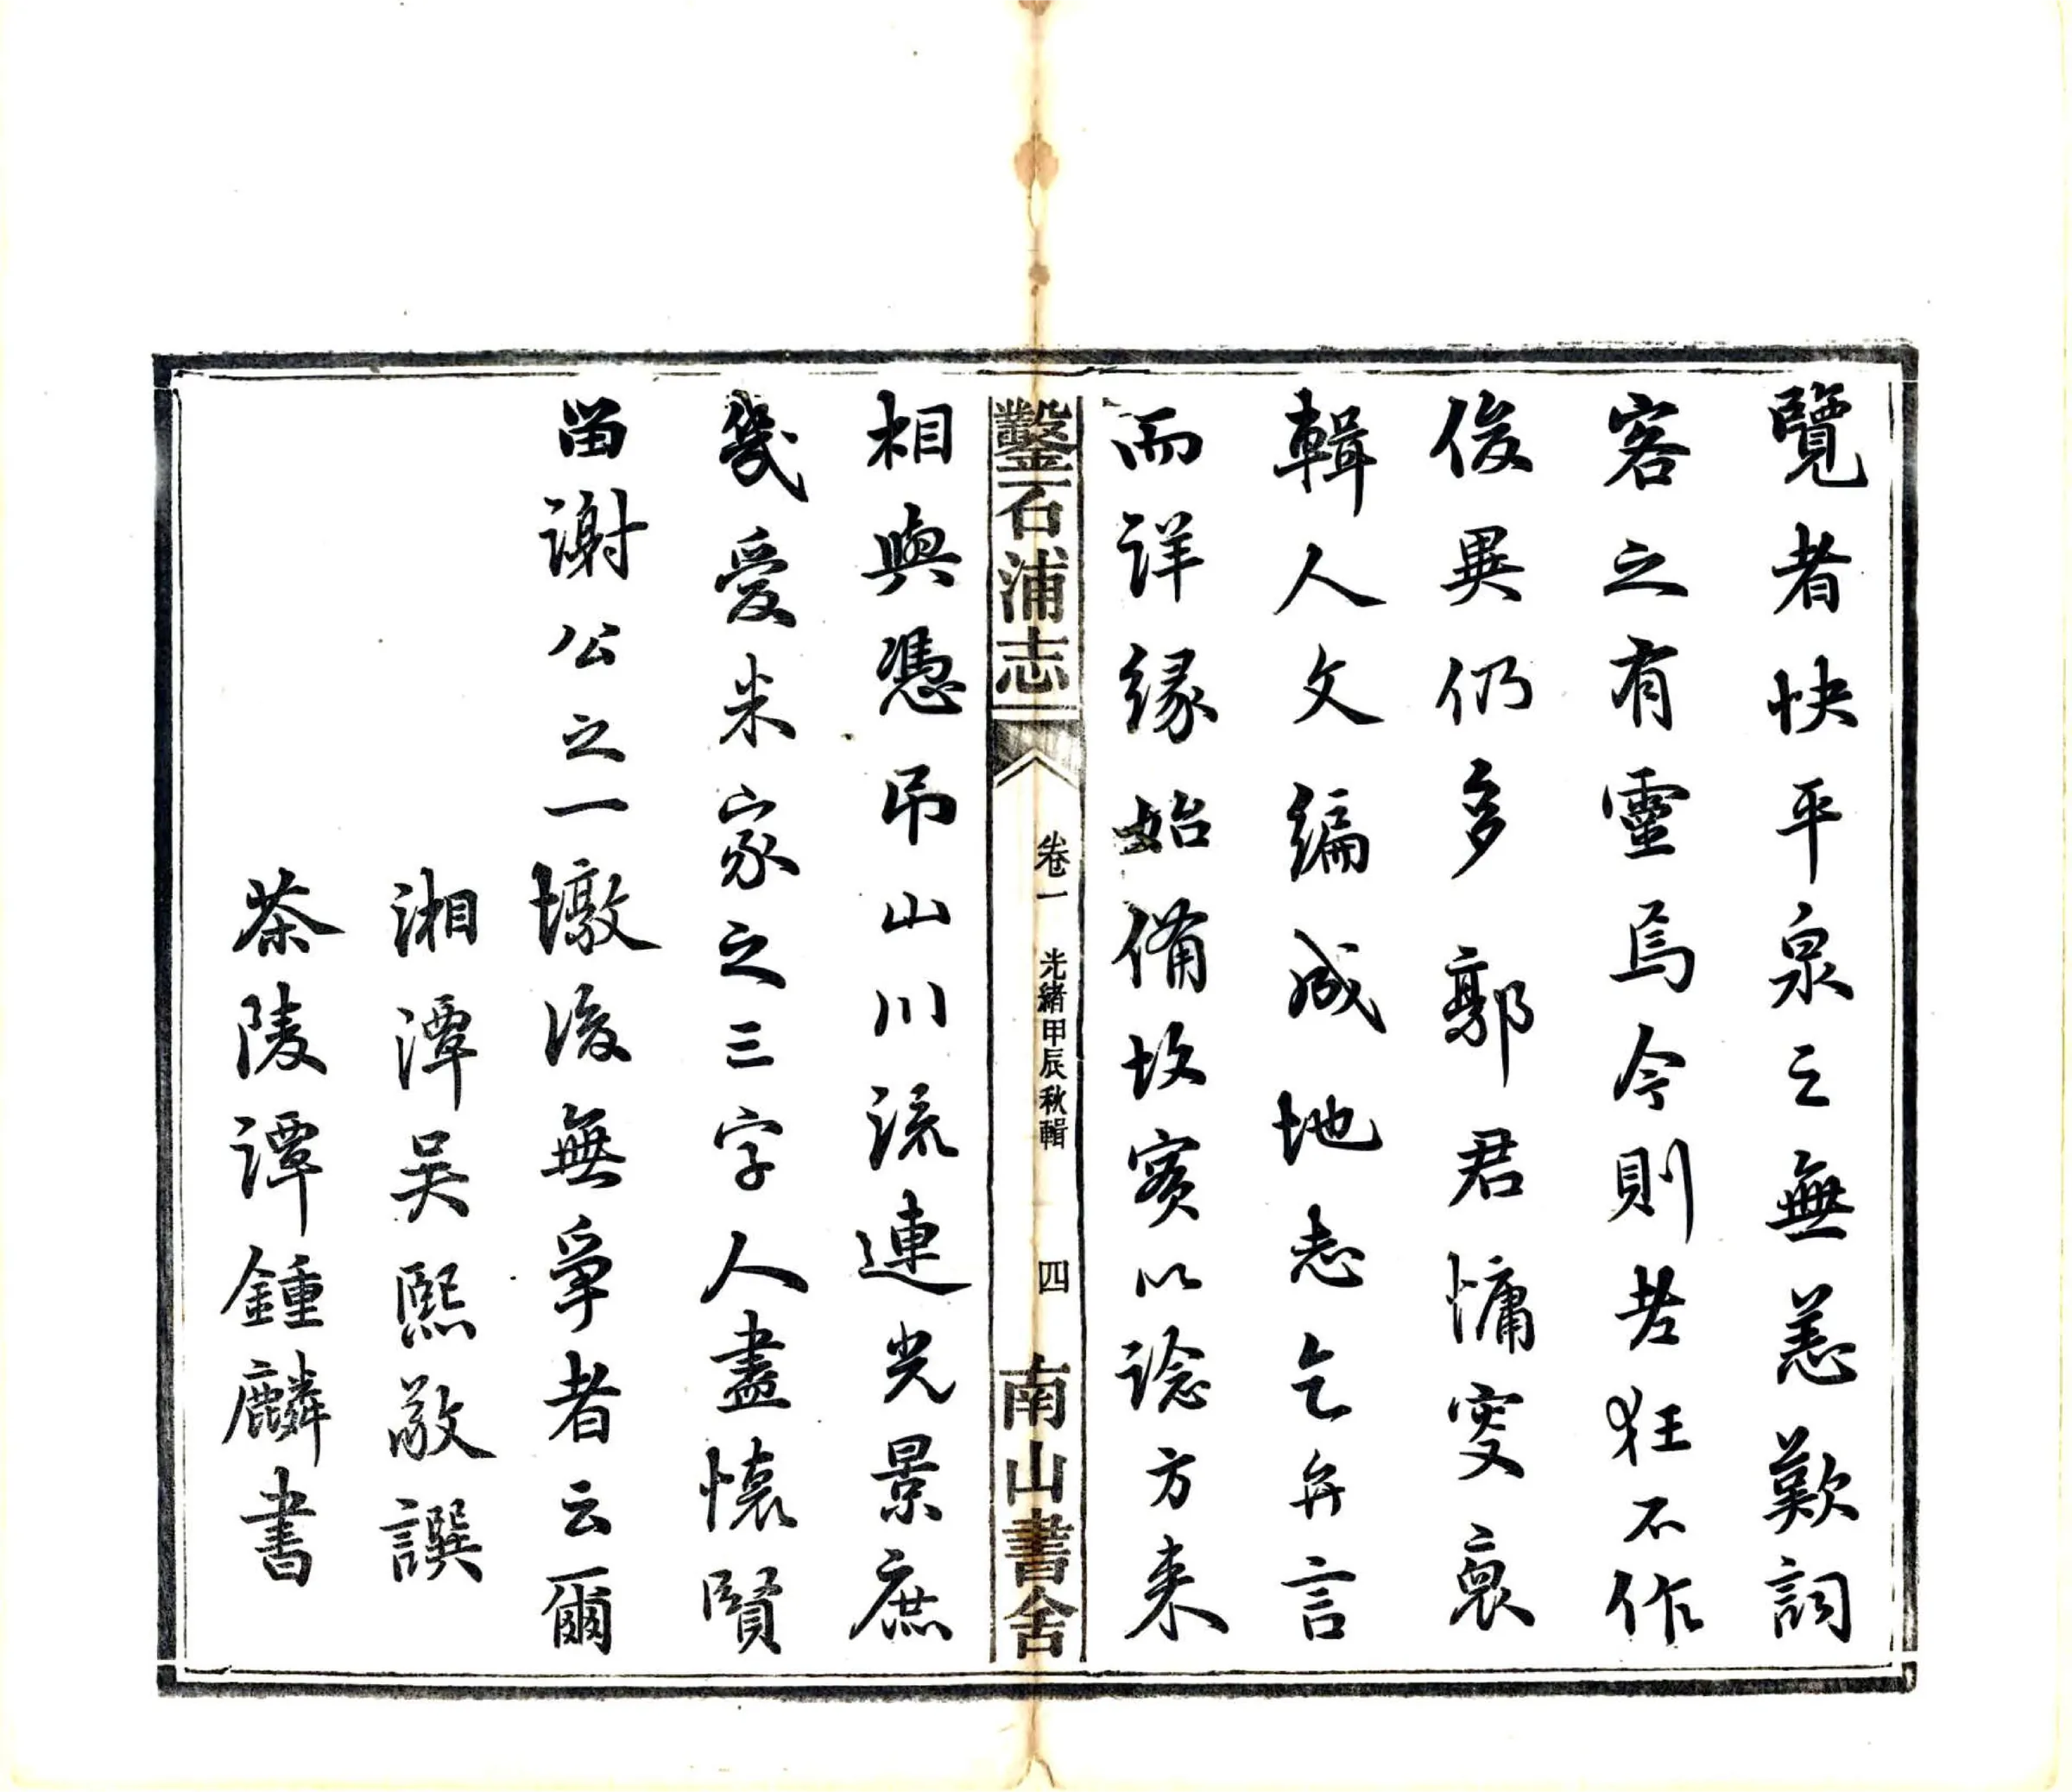 覽者快平泉之無恙歎詞
客之有靈焉今則若狂不作
俊異仍多郭君慵叟裒
輯人文編成地志乞弁言
而詳緣始備故實以諗方来
鑿石浦志
卷一 光緒甲辰秋輯 四
南山書舍
相與憑吊山川流連光景庶
幾愛米家之三字人盡懷賢
留謝公之一墩後無爭者云爾
湘潭吳熙敬譔
茶陵譚鍾麟書